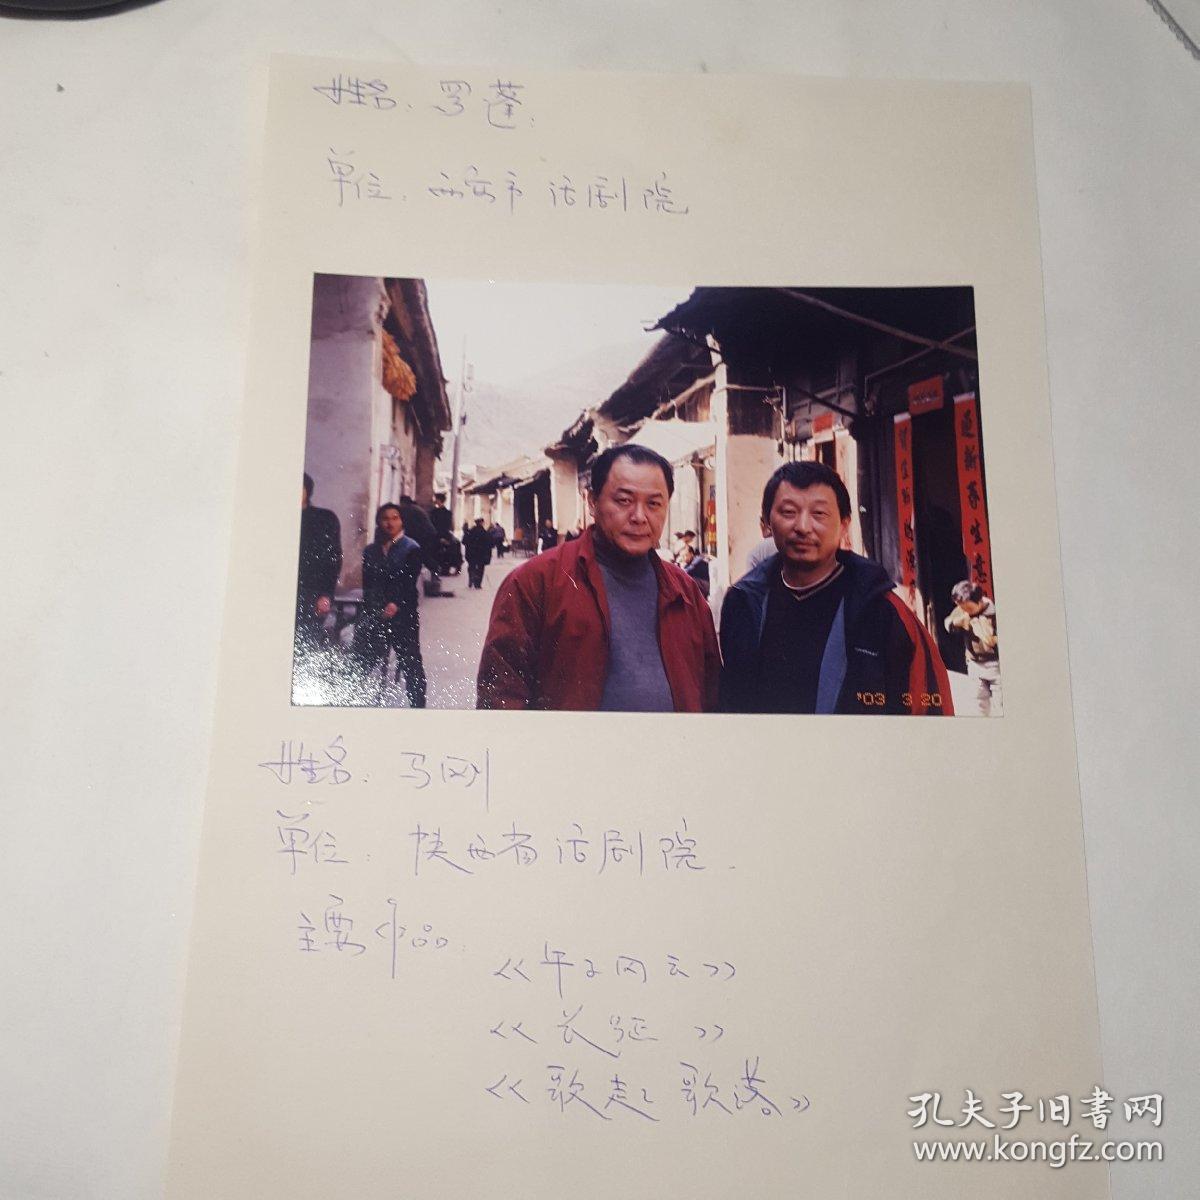 姓名：罗蓬
单位：西安市话剧院
'03 3 20
姓名：马刚
单位：陕西省话剧院
主要作品：
《长征》
《歌起歌落》
孔夫子旧書网
www.kongfz.com